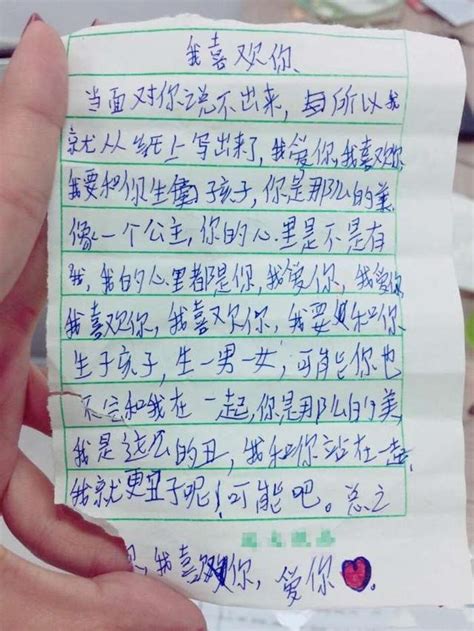 我喜欢你
当面对你说不出来，所以我
就从纸上写出来了，我爱你，我喜欢你
我要和你生孩子，你是那么的美
像一个公主，你的心里是不是有
我，我的心里都是你，我爱你，我爱你
我喜欢你，我喜欢你，我要和你
生子孩子，生一男一女，可能你也
不会和我在一起，你是那么的美
我是这么的丑，我和你站在一起
我就更丑了呢！可能吧。总之
我喜欢你，爱你